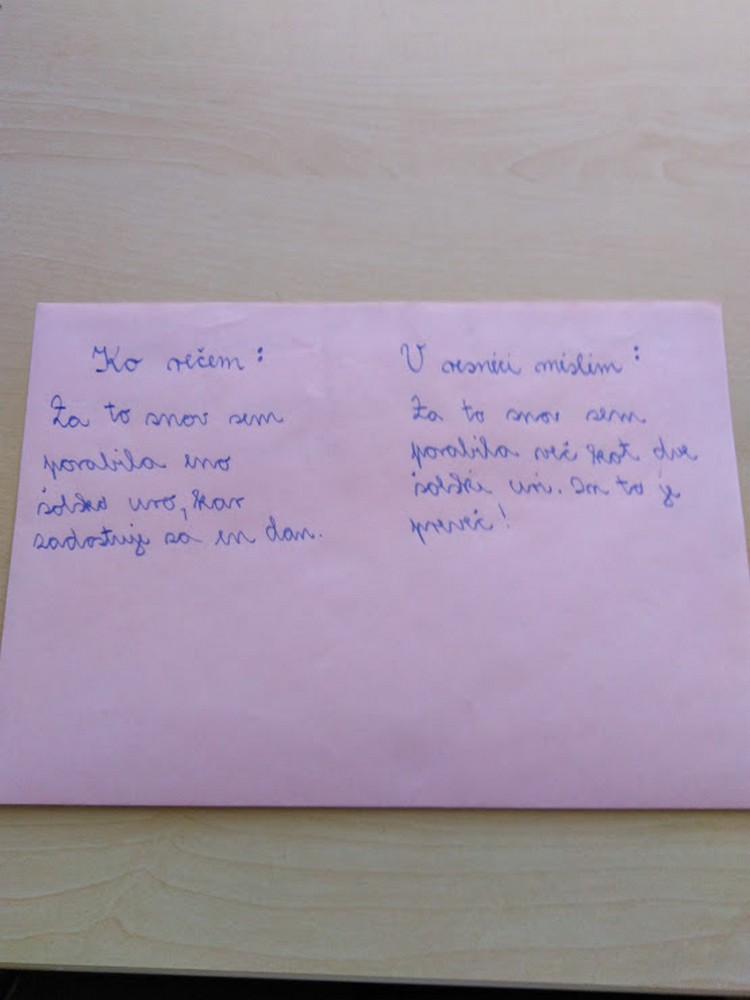 Ko rečem:
Za to snov sem
porabila eno
šolsko uro, kar
zadostuje za en dan.
V resnici mislim:
Za to snov sem
porabila več kot dve
šolski uri. In to je
preveč!